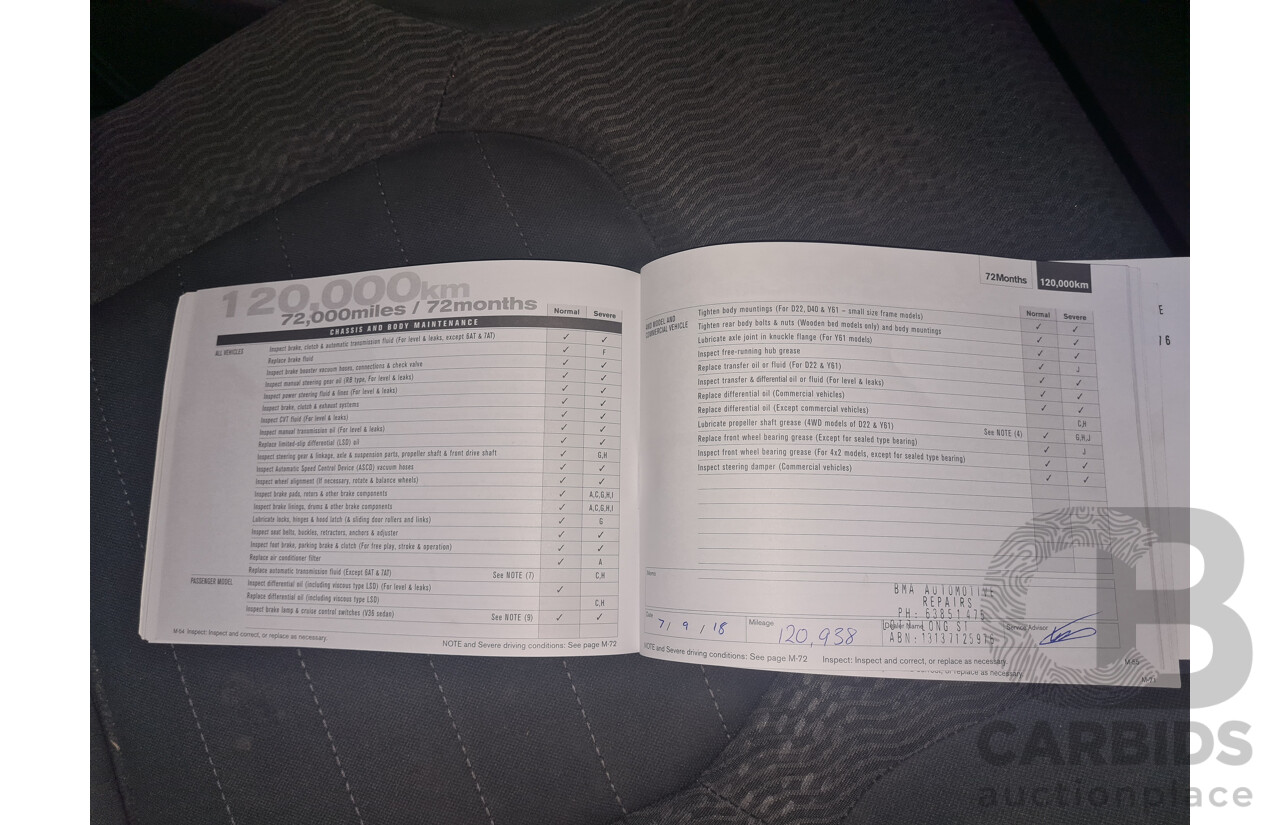 120,000km
72,000miles / 72months
Normal Severe
CHASSIS AND BODY MAINTENANCE
ALL VEHICLES
Inspect brake, clutch & automatic transmission fluid (For level & leaks, except 6AT & 7AT) ✓ ✓
Replace brake fluid ✓ F
Inspect brake booster vacuum hoses, connections & check valve ✓ ✓
Inspect manual steering gear oil (RB type, For level & leaks) ✓ ✓
Inspect power steering fluid & lines (For level & leaks) ✓ ✓
Inspect brake, clutch & exhaust systems ✓ ✓
Inspect CVT fluid (For level & leaks) ✓ ✓
Inspect manual transmission oil (For level & leaks) ✓ ✓
Replace limited-slip differential (LSD) oil ✓ ✓
Inspect steering gear & linkage, axle & suspension parts, propeller shaft & front drive shaft ✓ G,H
Inspect Automatic Speed Control Device (ASCD) vacuum hoses ✓ ✓
Inspect wheel alignment (If necessary, rotate & balance wheels) ✓ ✓
Inspect brake pads, rotors & other brake components ✓ A,C,G,H,I
Inspect brake linings, drums & other brake components ✓ A,C,G,H,I
Lubricate locks, hinges & hood latch (& sliding door rollers and links) ✓ G
Inspect seat belts, buckles, retractors, anchors & adjuster ✓ ✓
Inspect foot brake, parking brake & clutch (For free play, stroke & operation) ✓ ✓
Replace air conditioner filter ✓ A
Replace automatic transmission fluid (Except 6AT & 7AT) See NOTE (7) C,H
PASSENGER MODEL
Inspect differential oil (including viscous type LSD) (For level & leaks) ✓
Replace differential oil (including viscous type LSD) C,H
Inspect brake lamp & cruise control switches (V36 sedan) See NOTE (9) ✓ ✓
M-64 Inspect: Inspect and correct, or replace as necessary.
NOTE and Severe driving conditions: See page M-72
72Months 120,000km
Normal Severe
MODEL AND
COMMERCIAL VEHICLE
Tighten body mountings (For D22, D40 & Y61 - small size frame models) ✓ ✓
Tighten rear body bolts & nuts (Wooden bed models only) and body mountings ✓ ✓
Lubricate axle joint in knuckle flange (For Y61 models) ✓ ✓
Inspect free-running hub grease ✓ J
Replace transfer oil or fluid (For D22 & Y61) ✓ ✓
Inspect transfer & differential oil or fluid (For level & leaks) ✓ ✓
Replace differential oil (Commercial vehicles) ✓ ✓
Replace differential oil (Except commercial vehicles) C,H
Lubricate propeller shaft grease (4WD models of D22 & Y61) See NOTE (4) ✓ G,H,J
Replace front wheel bearing grease (Except for sealed type bearing) ✓ J
Inspect front wheel bearing grease (For 4x2 models, except for sealed type bearing) ✓ ✓
Inspect steering damper (Commercial vehicles) ✓ ✓
Memo
BMA AUTOMOTIVE
REPAIRS
PH: 6385147
LONG ST
ABN: 1313712597
Date 7/9/18 Mileage 120,938 Dealer Name Service Advisor
NOTE and Severe driving conditions: See page M-72 Inspect: Inspect and correct, or replace as necessary.
or replace as necessary.
M-65
M-71
E
16
CARBIDS
auctionplace